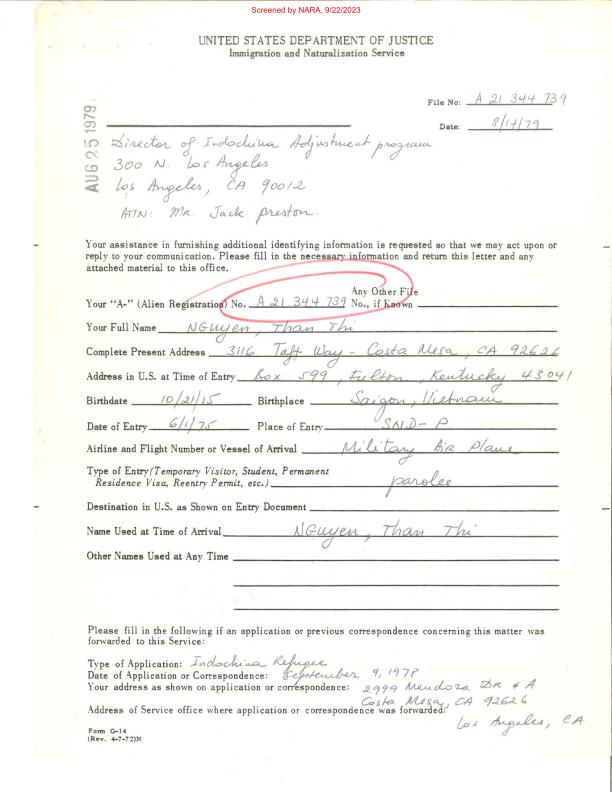 Screened by NARA, 9/22/2023
UNITED STATES DEPARTMENT OF JUSTICE
Immigration and Naturalization Service
File No: A 21 344 739
Date: 8/14/79
AUG 25 1979
Director of Indochina Adjustment program
300 N. Los Angeles
Los Angeles, CA 90012
ATTN: Mr. Jack Preston.
Your assistance in furnishing additional identifying information is requested so that we may act upon or
reply to your communication. Please fill in the necessary information and return this letter and any
attached material to this office.
Any Other File
Your "A-" (Alien Registration) No. A 21 344 739 No., if Known
Your Full Name NGuyen, Than Thi
Complete Present Address 3116 Taft Way - Costa Mesa, CA 92626
Address in U.S. at Time of Entry Box 599, Fulton, Kentucky 43041
Birthdate 10/21/15 Birthplace Saigon, Vietnam
Date of Entry 6/1/75 Place of Entry SND-P
Airline and Flight Number or Vessel of Arrival Military Air Plane
Type of Entry (Temporary Visitor, Student, Permanent
Residence Visa, Reentry Permit, etc.) parolee
Destination in U.S. as Shown on Entry Document
Name Used at Time of Arrival NGuyen, Than Thi
Other Names Used at Any Time
Please fill in the following if an application or previous correspondence concerning this matter was
forwarded to this Service:
Type of Application: Indochina Refugee
Date of Application or Correspondence: September 9, 1978
Your address as shown on application or correspondence: 2999 Mendoza DR # A
Costa Mesa, CA 92626
Address of Service office where application or correspondence was forwarded:
Los Angeles, CA
Form G-14
(Rev. 4-7-72)N